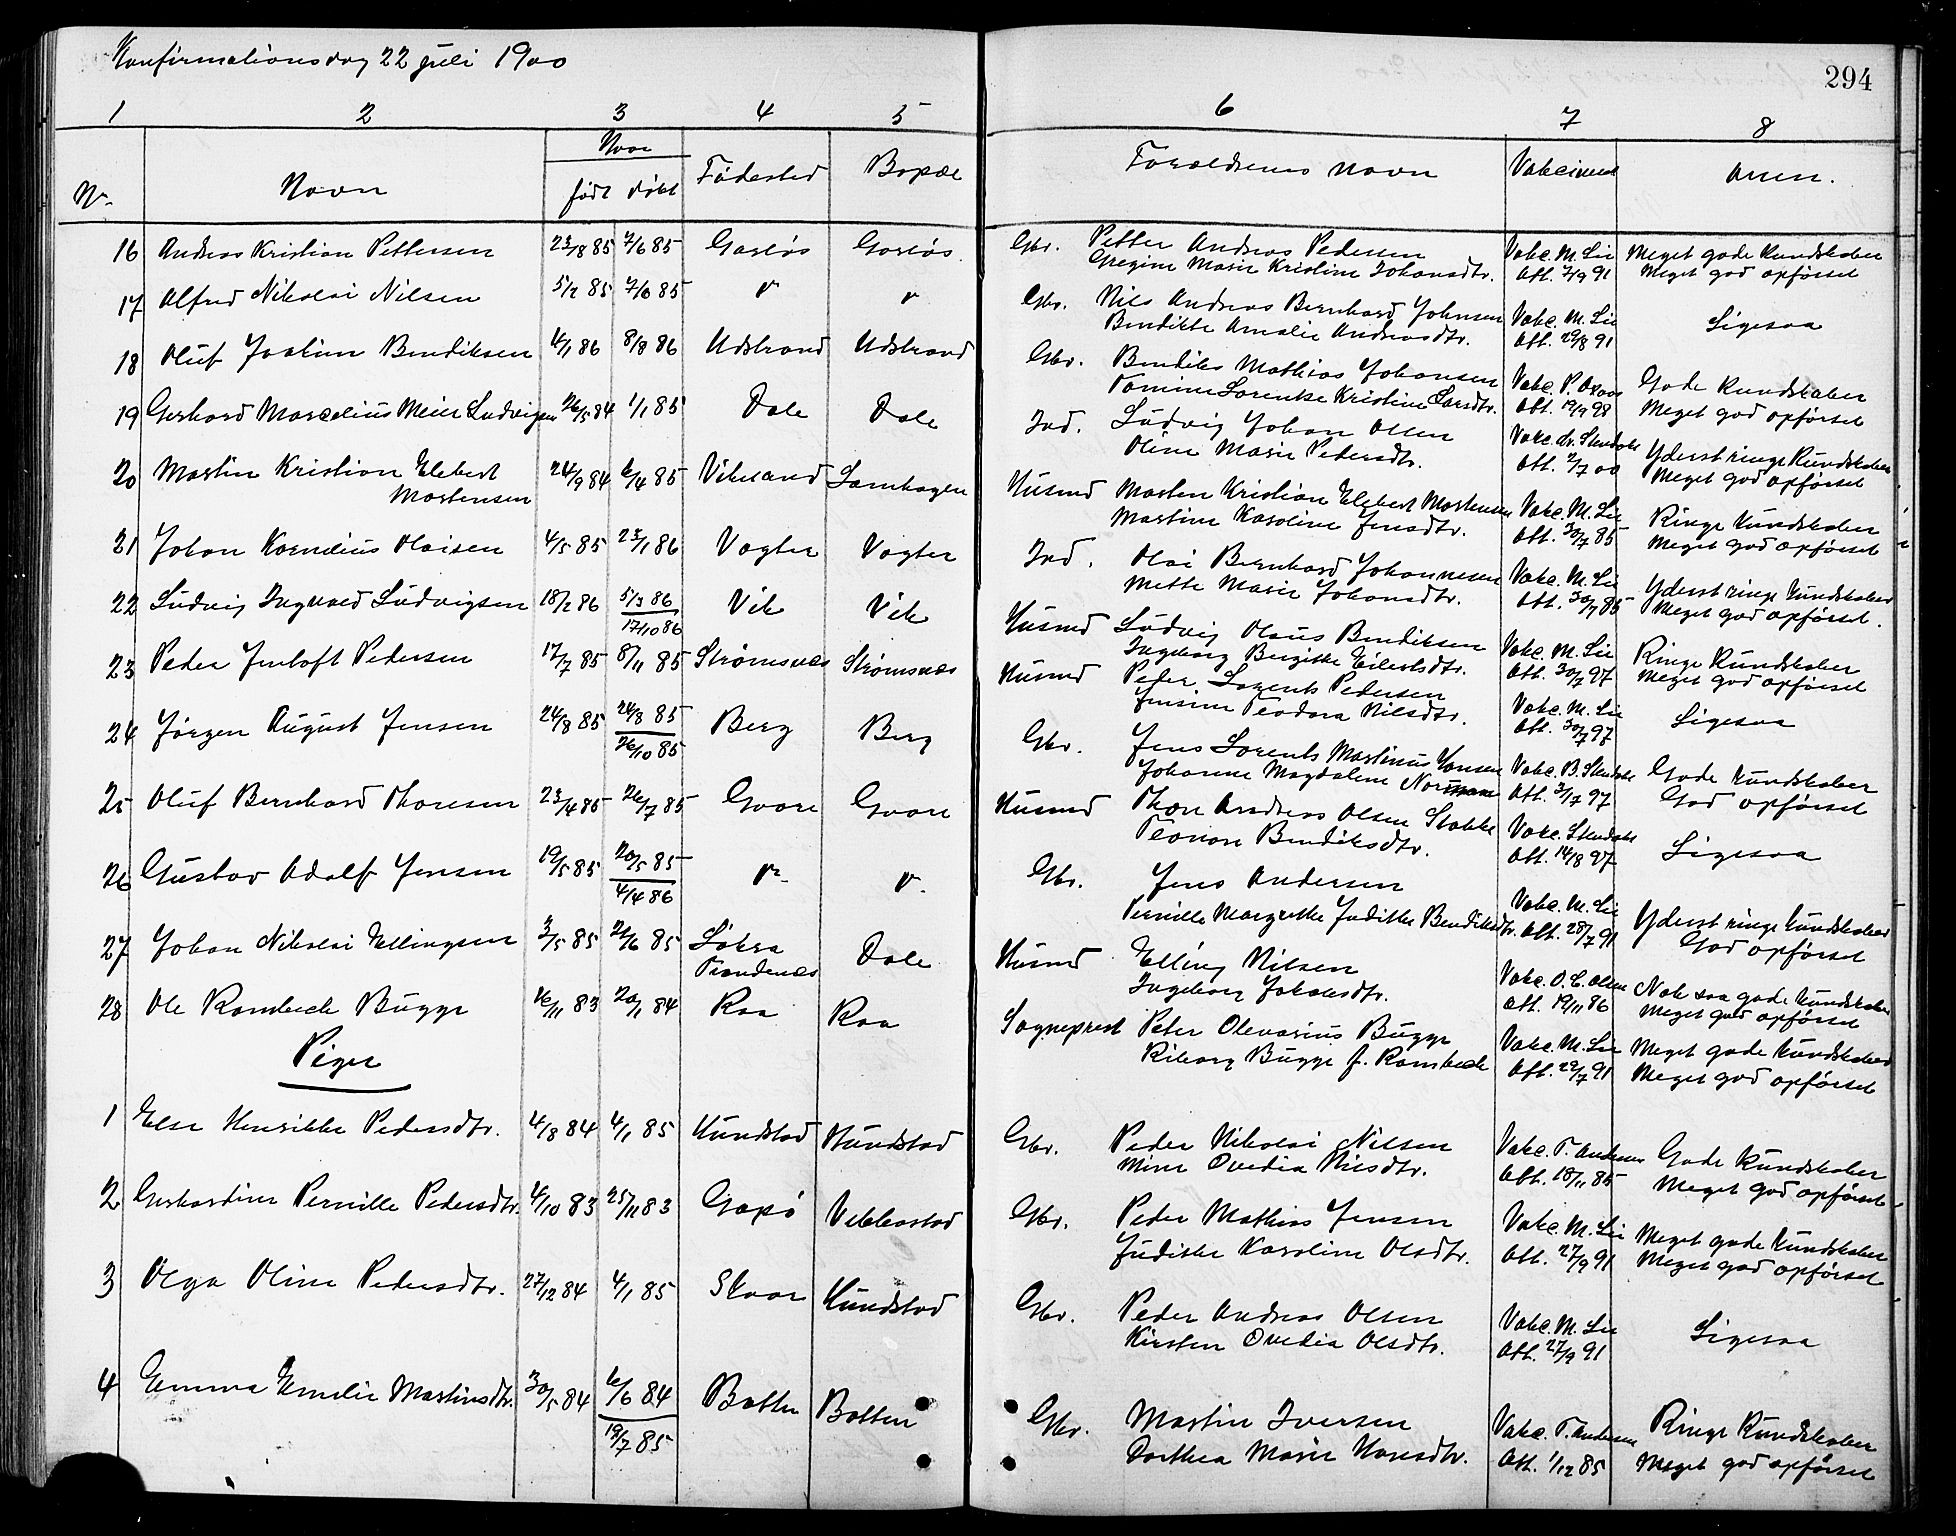 Konfirmationsdag 22 juli 1900
294
1 2 3 4 5 6 7 8
Nr. Navn Naar født døbt Fødested Bopæl Forældrenes navn Vakcineret Anm.
16 Andreas Kristian Pettersen 23/8 85 7/6 85 Gaasløs Gaasløs Gbr. Petter Andreas Pedersen Vakc. M. Lie Meget gode Kundskaber
Gregine Marie Kristine Johansdtr. Att. 7/9 91 Meget god opførsel
17 Alfred Nikolai Nilsen 5/2 85 7/6 85 " " Gbr. Nils Andreas Bernhard Johnsen Vakc. M. Lie Ligesaa
Bendikte Amalie Andreasdtr. Att. 29/8 91
18 Oluf Joakim Bendiksen 4/1 86 8/8 86 Udstrand Udstrand Gbr. Bendiks Mathias Johansen Vakc. P. Gode Kundskaber
Lorentse Kristine Larsdtr. Att. 19/9 98 Meget god opførsel
19 Gerhard Marselius Meier Ludvigsen 26/5 84 1/1 85 Dale Dale Ind. Ludvig Johan Olsen Vakc. Yderst ringe Kundskaber
Oline Marie Pedersdtr. Att. 2/7 00 Meget god opførsel
20 Martin Kristian Elebert 24/9 84 6/4 85 Vikesand Husmd Morten Kristian Elebert Mortensen Vakc. M. Lie Ringe Kundskaber
Mortensen Martine Karoline Jensdtr. Att. 30/7 85 Meget god opførsel
21 Johan Kornelius Olaisen 4/5 85 23/1 86 Vagter Vagter Ind. Olai Bernhard Johannesen Vakc. M. Lie Yderst ringe Kundskaber
Mette Marie Johansdtr. Att. 30/7 85 Meget god opførsel.
22 Ludvig Ingvald Ludvigsen 18/2 86 5/3 86 Vik Vik Husmd Ludvig Olaus Bendiksen Vakc. M. Lie Ringe Kundskaber
17/10 86 Ingeborg Bergitte Eilertsdtr. Att. 30/7 97 Meget god opførsel
23 Peder Jentoft Pedersen 17/7 85 8/11 85 Strømsnæs Strømsnæs Husmd Peder Lorents Pedersen Vakc. M. Lie Ligesaa
Jensine Teodora Nilsdtr. Att. 30/7 97
24 Jørgen August Jensen 24/8 85 24/8 85 Berg Berg Gbr. Jens Lorents Martinus Hansen Vakc. B. Gode Kundskaber
26/10 85 Johanne Magdalene Att. 3/7 97 God opførsel
25 Oluf Bernhard Thoresen 23/4 85 26/7 85 Gaare Gaare Husmd Thore Andreas Olsen Stokke Vakc. Ligesaa
Bendiksdtr. Att. 14/8 97
26 Gustav Adolf Jensen 19/5 85 20/5 85 " " Gbr. Jens Andersen Vakc. M. Lie Yderst ringe Kundskaber
4/4 86 Pernille Margrethe Judithe Bendiksdtr. Att. 28/7 91 God opførsel
27 Johan Nikolai Ellingsen 3/5 85 21/6 85 Løksa Dale Husmd Elling Nilsen Vakc. O. C. Olsen Nok saa gode Kundskaber
Trondenæs Ingeborg Jakobsdtr. Att. 19/11 86 Meget god opførsel
28 Ole Rambech Bugge 16/11 83 20/1 84 Raa Raa Sogneprest Peter Olevarius Bugge Vakc. M. Lie Meget gode Kundskaber
Riborg Bugge f. Rambech Att. 29/7 91 Meget god opførsel
Piger
1 Else Henrikke Pedersdtr. 4/8 84 4/1 85 Kundstad Kundstad Gbr. Peder Nikolai Nilsen Vakc. T. Andersen Gode Kundskaber
Mine Ovedia Nilsdtr. Att. 18/11 85 Meget god opførsel
2 Gerhardine Pernille Pedersdtr. 4/10 83 25/11 83 Gapø Vebbestad Gbr. Peder Mathias Jensen Vakc. M. Lie Meget gode Kundskaber
Judithe Karoline Olsdtr. Att. 27/9 91 Meget god opførsel
3 Olga Oline Pedersdtr. 27/12 84 4/1 85 Skaar Kundstad Gbr. Peder Andreas Olsen Vakc. M. Lie Ligesaa
Kirsten Ovedia Olsdtr. Att. 27/9 91
4 Emma Emelie Martinsdtr. 30/5 84 6/6 84 Botten Botten Gbr. Martin Iversen Vakc. T. Andersen Ringe Kundskaber
19/7 85 Dorthea Marie Hansdtr. Att. 1/12 85 Meget god opførsel